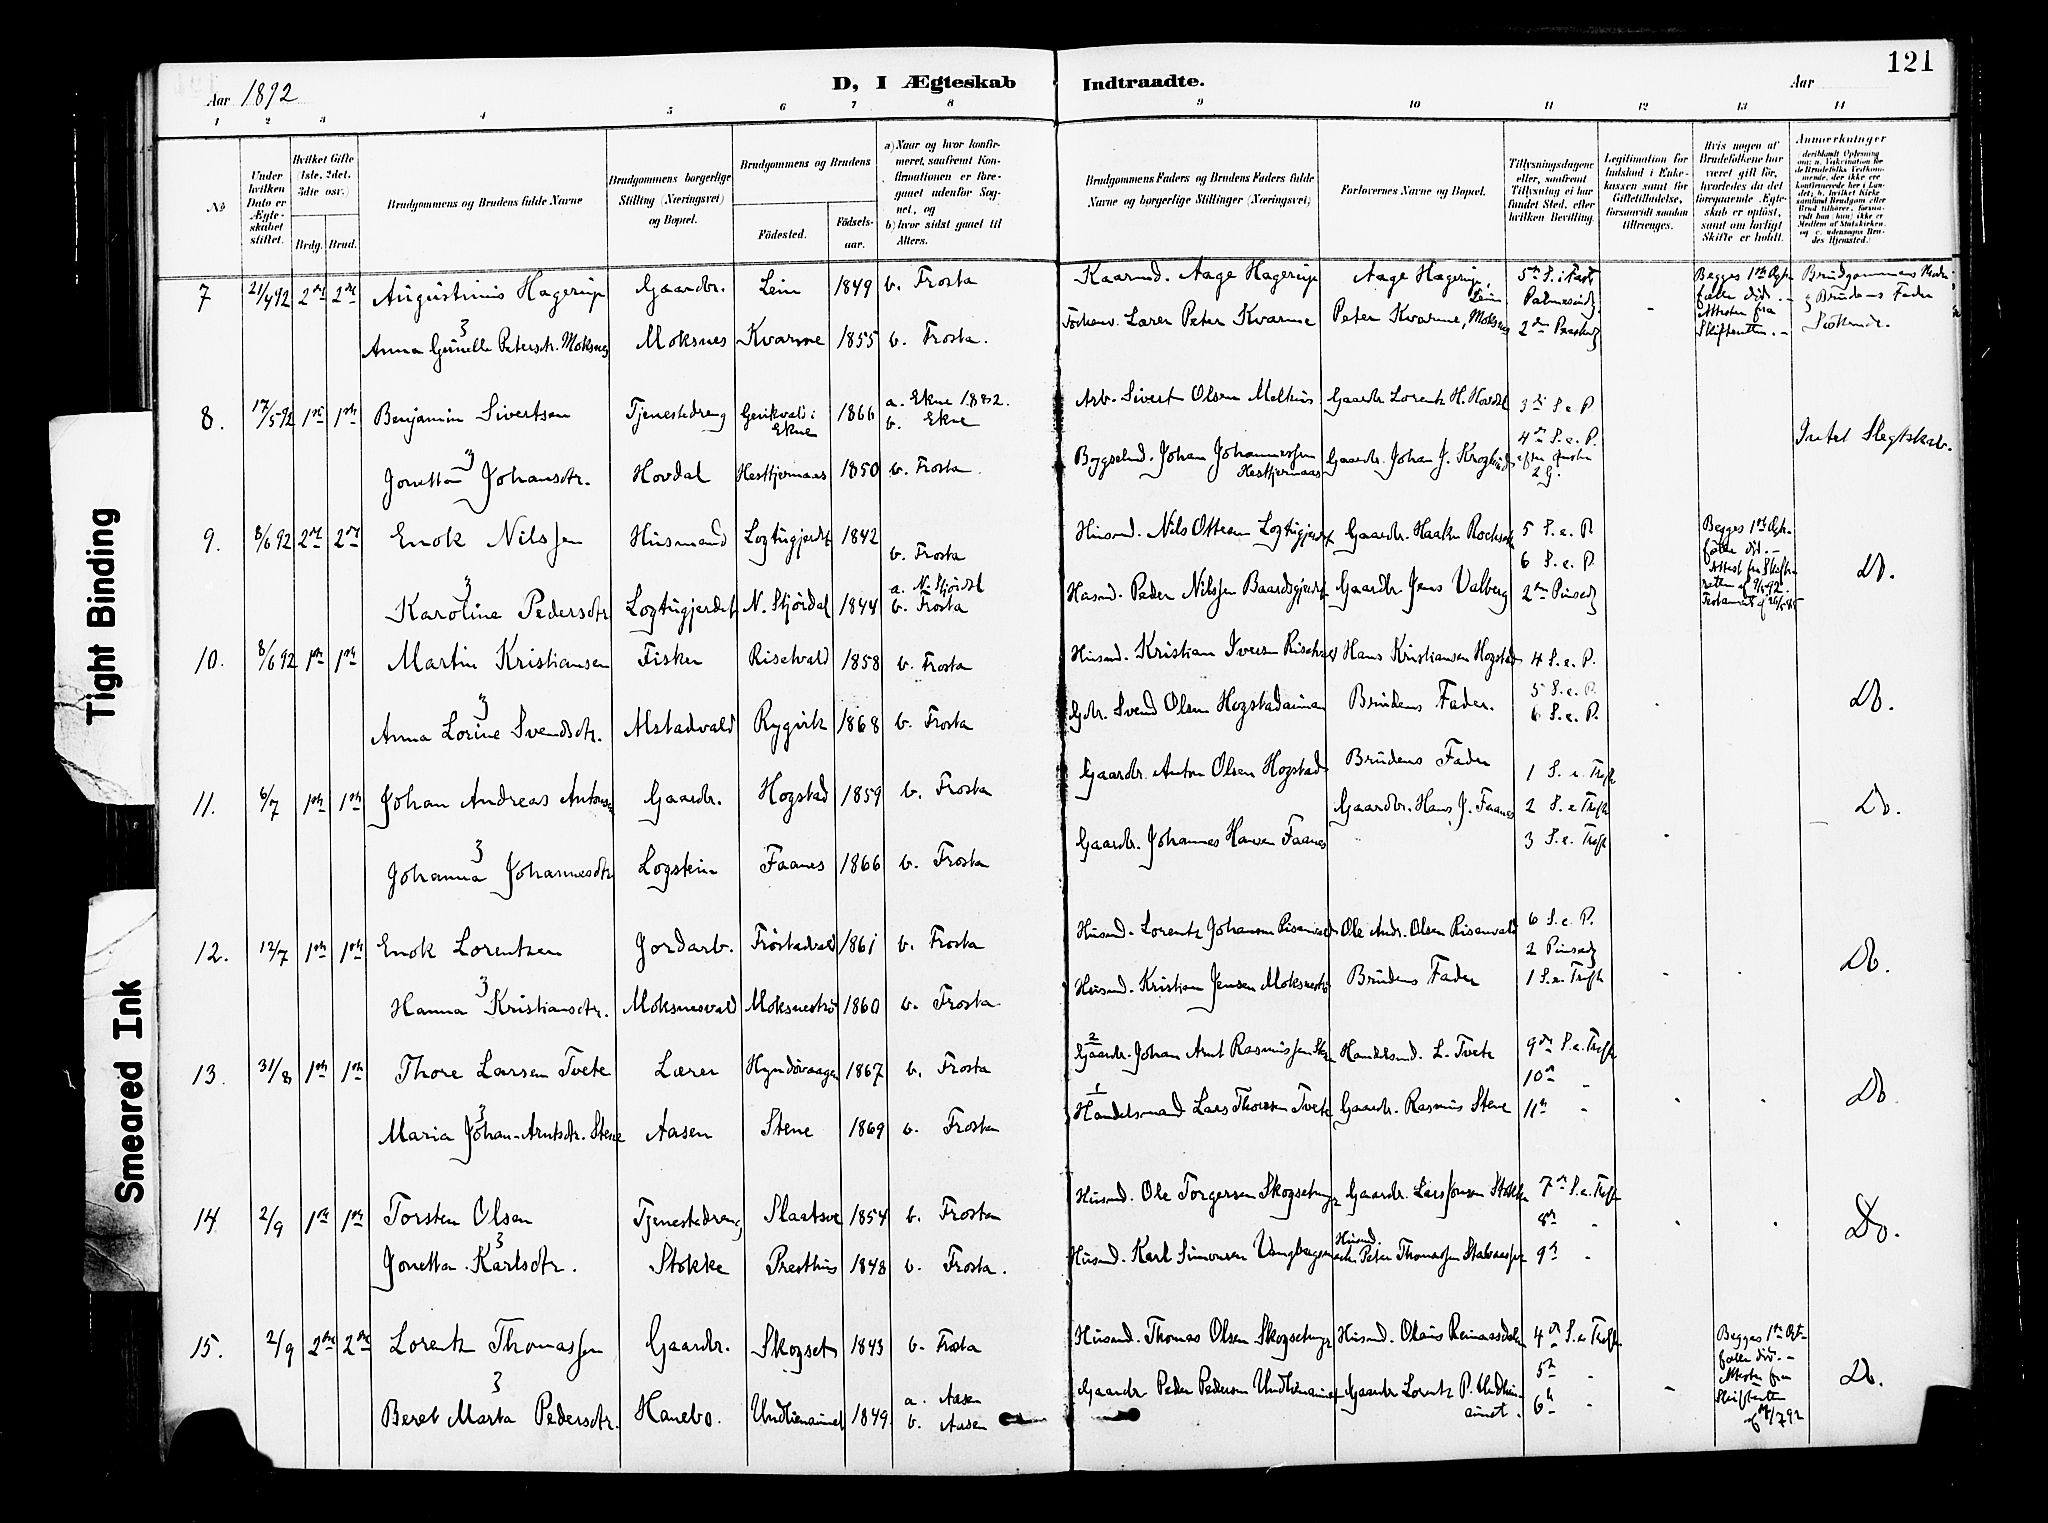 121
Aar 1892
D, I Ægteskab Indtraadte.
Aar
1 2 3 4 5 6 7 8 9 10 11 12 13 14
№
Under hvilken Dato er Ægteskabet stiftet.
Hvilket Gifte (1ste, 2det, 3die osv.)
Brdg. Brud.
Brudgommens og Brudens fulde Navne
Brudgommens borgerlige Stilling (Næringsvei) og Bopæl.
Brudgommens og Brudens
Fødested.
Fødselsaar.
a) Naar og hvor konfirmeret, saafremt Konfirmationen er foregaaet udenfor Sognet, og
b) hvor sidst gaaet til Alters.
Brudgommens Faders og Brudens Faders fulde Navne og borgerlige Stillinger (Næringsvei)
Forlovernes Navne og Bopæl.
Tillysningsdagene eller, saafremt Tillysning ei har fundet Sted, efter hvilken Bevilling.
Legitimation for Indskud i Enkekassen samt for Giftetilladelse, forsaavidt saadan tiltrænges.
Hvis nogen af Brudefolkene har været gift før, hvorledes da det foregaaende Ægteskab er opløst, samt om lovligt Skifte er holdt.
Anmærkninger
7 21/4 92 2den 2den Augustinus Hagerup Gaardbr. Lein 1849 b. Frosta Kaarmd. Aage Hagerup Aage Hagerup, Lein 5te S. i Faste Begges 1ste Ægte- Brudgommens Moder
Palmesøndg fælle død. – & Brudens Fader
& Anna Gunelle Petersdtr. Moksnes Moksnes Kvarme 1855 b. Frosta. Lærer Peter Kvarme Peter Kvarme, Moksnes 2den Paaskedg – Attester fra Skifteretten. – Søskende.
8. 17/5 92 1ste 1ste Benjamin Sivertsen Tjenestedreng Ekne 1866 a. Ekne 1882. b. Ekne Arb. Sivert Olsen Melhus Gaardbr. Lorentz H. Hovdal 3die S. e. P.
& Jonetta Johansdtr. Hovdal Hestkjermaas 1850 b. Frosta. Bygselmd. Johan Johannessen Hestkjermaas Gaardbr. Johan J. 4de S. e. P. Intet Slegtskab.
9. 8/6 92 2den 2den Enok Nilssen Husmand Logtugjerdet 1842 b. Frosta Husmd. Nils Ottesen Logtugjerdet Gaardbr. Haakn 5 S. e. P. Begges 1ste Ægte-
6 S. e. P. fælle død. –
& Karoline Pedersdtr Logtugjerdet N. Stjørdal 1844 a. N. Stjørdal b. Frosta Husmd. Peder Nilssen Baardsgjerdet Gaardbr. Jens Valberg 2den Pinsedg Attest fra Skifteretten Do.
10. 8/6 92 1ste 1ste Martin Kristiansen Fisker Risetvald 1858 b. Frosta Husmd. Kristian Iversen Risetvald Hans Kristiansen Hogstad 4 S. e. P.
5 S. e. P.
& Anna Lorine Svendsdtr. Alstadvald Rygvik 1868 b. Frosta Gbr. Svend Olsen Hogstadaunan Brudens Fader. 6 S. e. P. Do.
11. 6/7 1ste 1ste Johan Andreas Antonsen Gaardbr. Hogstad 1859 b. Frosta Gaardbr. Anton Olsen Hogstad Brudens Fader 1 S. e. Trefh
Gaardbr. Hans J. Faanes 2 S. e Trefh Do.
& Johanna Johannesdtr Logstein Faanes 1866 b. Frosta Gaardbr. Johannes Hansen Faanes 3 S. e. Trefh
12. 12/7 1ste 1ste Enok Lorentzen Jordarb. Frostadvald 1861 b. Frosta Husmd. Lorentz Johansen Risanvald Ole Andr. Olsen Risanvald 6 S. e. P.
2 Pinsedg Do.
& Hanna Kristiansdtr. Moksnesvald Moksnestrø 1860 b. Frosta Husmd. Kristian Jensen Moksnestrø Brudens Fader 1 S. e. Trefh
13. 31/8 1ste 1ste Thore Larsen Tvete Lærer Hyndøvaagen 1867 b. Frosta 2 Gaardbr. Johan Arnt Rasmussen Handelsmd. L. Tvete 9de S. e. Trefh
10de "
& Maria Johan-Arntsdtr. Stene Aasen Stene 1869 b. Frosta 1 Handelsmand Lars Thoresen Tvete Gaardbr. Rasmus Stene 11te " Do
14. 2/9 1ste 1ste Torsten Olsen Tjenestedreng 1854 b. Frosta Husmd. Ole Torgersen Gaardbr. Lars Jonsen Stokke 7de S. e. Trefh
8de " Do.
& Jonetta Karlsdtr. Stokke Presthus 1848 b. Frosta. Husmd. Karl Simonsen Husmd. Peter Thomassen 9de "
15. 2/9 2den 2den Lorentz Thomassen Gaardbr. Skogset 1843 b. Frosta Husmd. Thomas Olsen Husmd. Olaus 4de S. e. Trefh Begges 1ste Ægte-
5te " fælle død. –
& Beret Marta Pedersdtr. Hanebo. Undlienaunet 1849 a. Aasen b. Aasen Gaardbr. Peder Pedersen Undlienaunet Gaardbr Lorentz P. Undlienaunet. 6te " – Attester fra Skifteretten Do.
Tight Binding
Smeared Ink